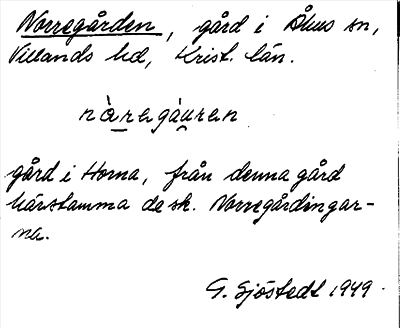 Norregården, gård i Åhus sn,
Villands hd, Krist. län.
nàregáuren
gård i Horna, från denna gård
härstamma de sk. Norregårdingar-
na.
G. Sjöstedt 1949.